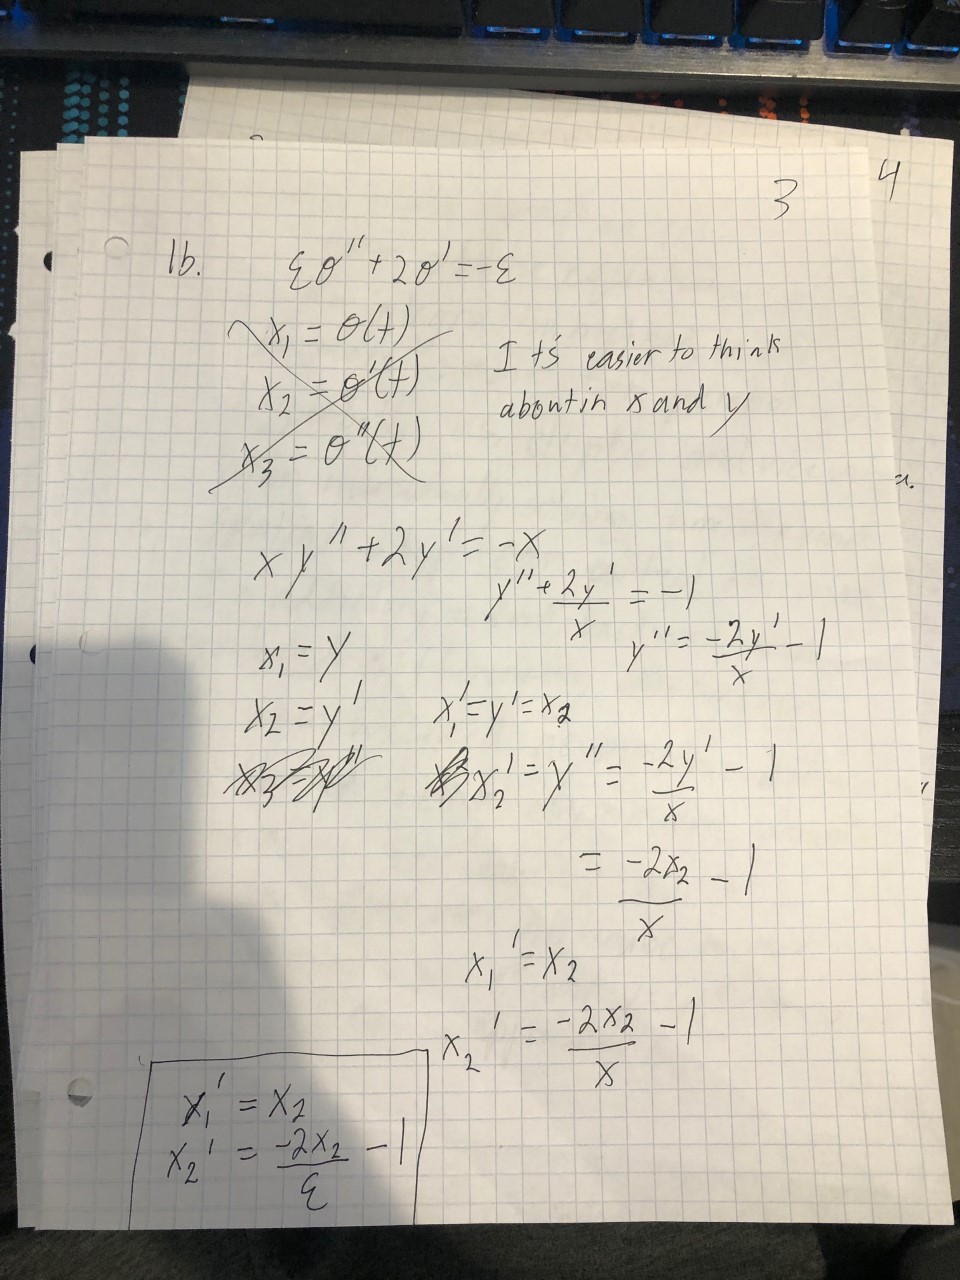 3
4
1b. εθ'' + 2θ' = -ε
x₁ = θ(t)
x₂ = θ'(t)
x₃ = θ''(t)
It's easier to think
about in x and y
xy'' + 2y' = -x
y'' + 2y'/x = -1
y'' = -2y'/x - 1
x₁ = y
x₂ = y' x₁' = y' = x₂
x₂' = y'' = -2y'/x - 1
= -2x₂/x - 1
x₁' = x₂
x₂' = -2x₂/x - 1
x₁' = x₂
x₂' = -2x₂/ε - 1